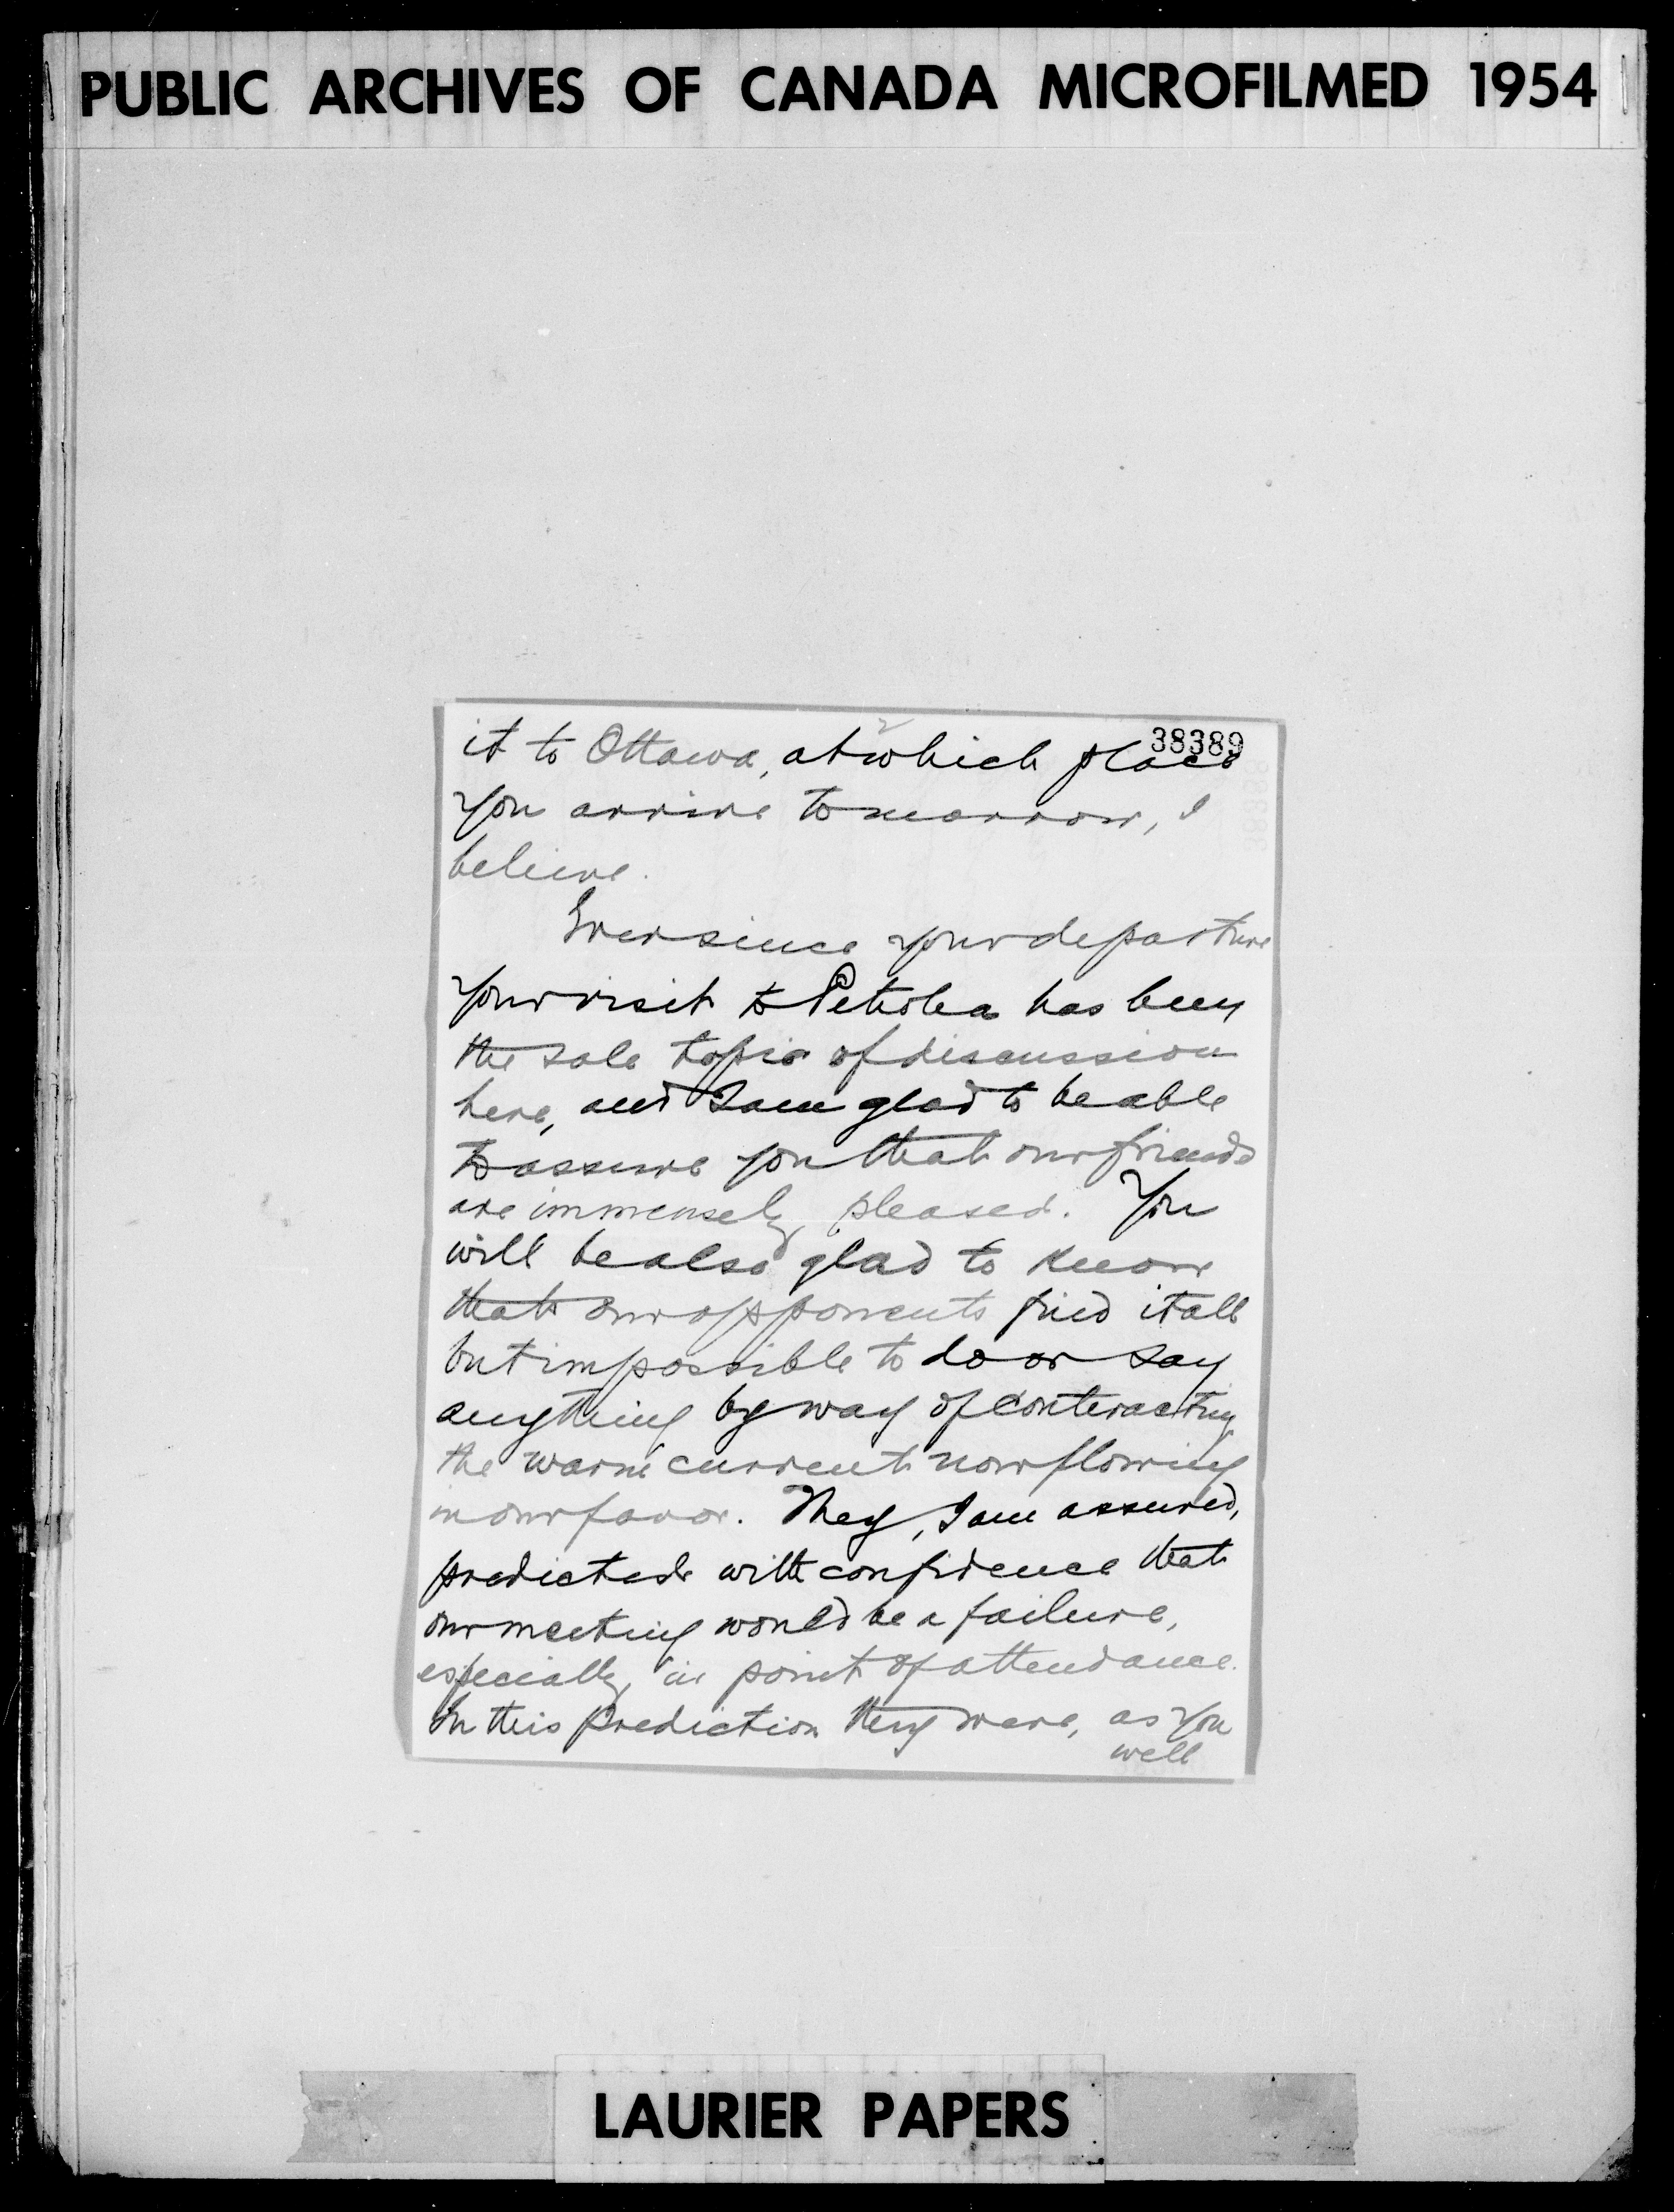 PUBLIC ARCHIVES OF CANADA MICROFILMED 1954
2
38389
it to Ottawa, at which place
you arrive tomorrow, I
believe.
Ever since your departure
your visit to Petrolea has been
the sole topic of discussion
here, and I am glad to be able
to assure you that our friends
are immensely pleased. You
will be also glad to know
that our opponents find it all
but impossible to do or say
anything by way of conteracting
the warm current now flowing
in our favor. They, I am assured,
predicted with confidence that
our meeting would be a failure,
especially in point of attendance.
In this prediction they were, as you
well
LAURIER PAPERS